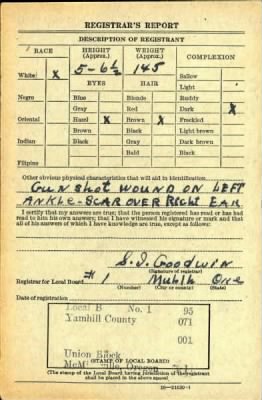 REGISTRAR'S REPORT
DESCRIPTION OF REGISTRANT
RACE HEIGHT (Approx.) WEIGHT (Approx.) COMPLEXION
White X 5-6½ 145 Sallow
EYES HAIR Light
Negro Blue Blonde Ruddy
Gray Red Dark X
Oriental Hazel X Brown X Freckled
Brown Black Light brown
Indian Black Gray Dark brown
Bald Black
Filipino
Other obvious physical characteristics that will aid in identification
GUN SHOT WOUND ON LEFT
ANKLE-SCAR OVER Right EAR
I certify that my answers are true; that the person registered has read or has had
read to him his own answers; that I have witnessed his signature or mark and that
all of his answers of which I have knowledge are true, except as follows:
S. J. Goodwin
(Signature of registrar)
Registrar for Local Board #1 Ore
(Number) (City or county) (State)
Date of registration
Local B No. 1 95
Yamhill County 071
001
Union Block
Oregon
(STAMP OF LOCAL BOARD)
(The stamp of the Local Board having jurisdiction of the registrant
shall be placed in the above space.)
16-21630-1